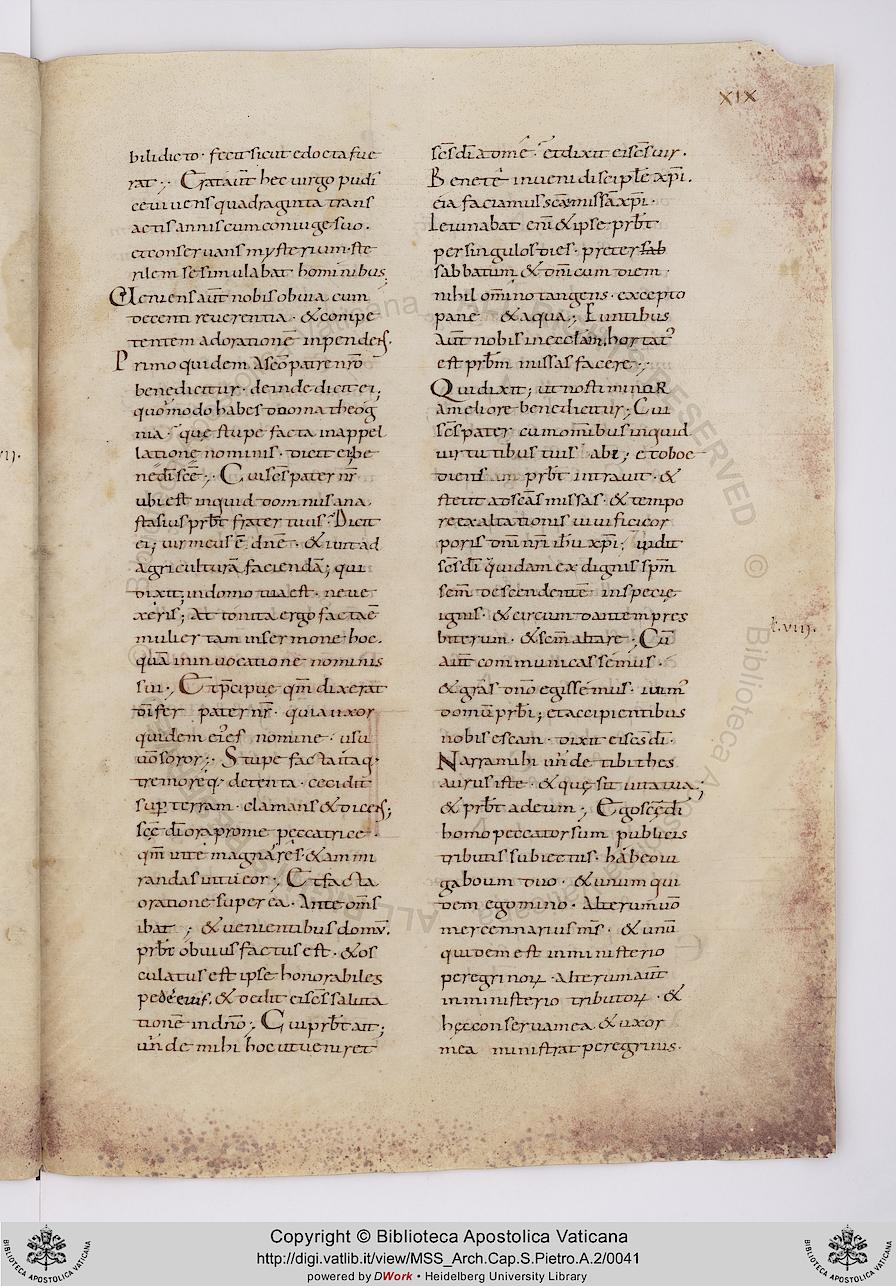 XIX
bilidicto · fecit sicut edocta fue
rat ·, Erat aut̄ hec uirgo pudi
ce uiuens quadraginta trans
actis annis cum coniuge suo ·
et conseruans mysterium · ste
rilem se simulabat hominibus;
Ueniens aut̄ nobis obuia cum
decenti reuerentia · & compe
tentem adorationē inpendens.
Primo quidem a sc̄o patre nr̄o
benedicitur · deinde dicit ei;
quomodo habes domna theog
nia · que stupe facta in appel
latione nominis · dicit ei · be
nedi sc̄e ·, Cui sc̄s pater nr̄
ubi est inquid domnus ana
stasius prb̄t frater tuus · Dicit
ei; uir meus ē dn̄e · & iuit ad
agriculturā faciendā; qui
dixit, in domo tua est · ne ue
xeris; Attonita ergo facta ē
mulier tam in sermone hoc ·
quā in inuocatione nominis
sui ·, Et p̄cipue qm̄ dixerat
pater nr̄ · quia uxor
quidem ei's nomine · usu
uō soror ·, Stupe facta itaq·
tremore q· detenta · cecidit
sup̄ terram · clamans & dicens;
sc̄e dī ora pro me peccatrice ·
qm̄ uite magna res & ammi
randas intueor ·, Et facta
oratione super ea · Ante om̄s
ibat ; & uenientibus domū.
prb̄t obuius factus est · & os
culatus est ipse honorabiles
pedes eius. & dedit ei sc̄s saluta
tionē in dn̄o ·, Cui prb̄t ait;
un̄de mihi hoc ut ueniret
sc̄s dī ad me · et dixit ei sc̄s uir ·
Bene te inueni disciple xp̄i.
eia faciamus sc̄as missā xp̄i ·
Ieiunabat eni & ipse prb̄t
per singulos dies · preter sab
sabbatum & dn̄icum diem ·
nihil om̄ino tangens · excepto
pane & aqua ·, Euntibus
aut̄ nobis in eccl̄am, hortat'
est prb̄m missas facere ·,
Qui dixit; ut nosti minor
a meliore benedicitur ·, Cui
sc̄s pater cum omnibus inquid
uirtutibus tuis abi; et oboe
diens prb̄t intrauit · &
stetit ad sc̄as missas · & tempo
re exaltationis uiuifici cor
poris dn̄i nr̄i ih̄u xp̄i; uidit
sc̄s dī q̄uidam ex dignis sp̄m
sc̄m descendentē in specie
ignis · & circum dantem pres
biterum · & sc̄m altare ·, Cū
aut̄ communicassemus ·
& gr̄as dn̄o egissemus · iuim'
domū prb̄i; et accipientibus
nobis escam · dixit ei sc̄s dī ·
Narra mihi un̄de tibi thes
aurus iste · & que sit uita tua;
& prb̄t ad eum ·, Ego sc̄e dī
homo peccator sum publicis
tributis subiectus · habeo iu
ga boum duo · & unum qui
dem ego mino · Alterum uō
mercennarius m̄s · & unū
quidem est in ministerio
peregrinoꝝ · alterum aut̄
in ministerio tributoꝝ · &
hec conserua mea & uxor
mea ministrat peregrinis ·
VII.
k. VIII.
Copyright © Biblioteca Apostolica Vaticana
http://digi.vatlib.it/view/MSS_Arch.Cap.S.Pietro.A.2/0041
powered by DWork • Heidelberg University Library
BIBLIOTECA APOSTOLICA VATICANA
BIBLIOTECA APOSTOLICA VATICANA